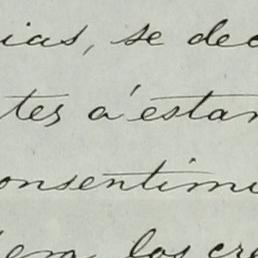 ias, se dec
tes á estar
onsentimi
los cre